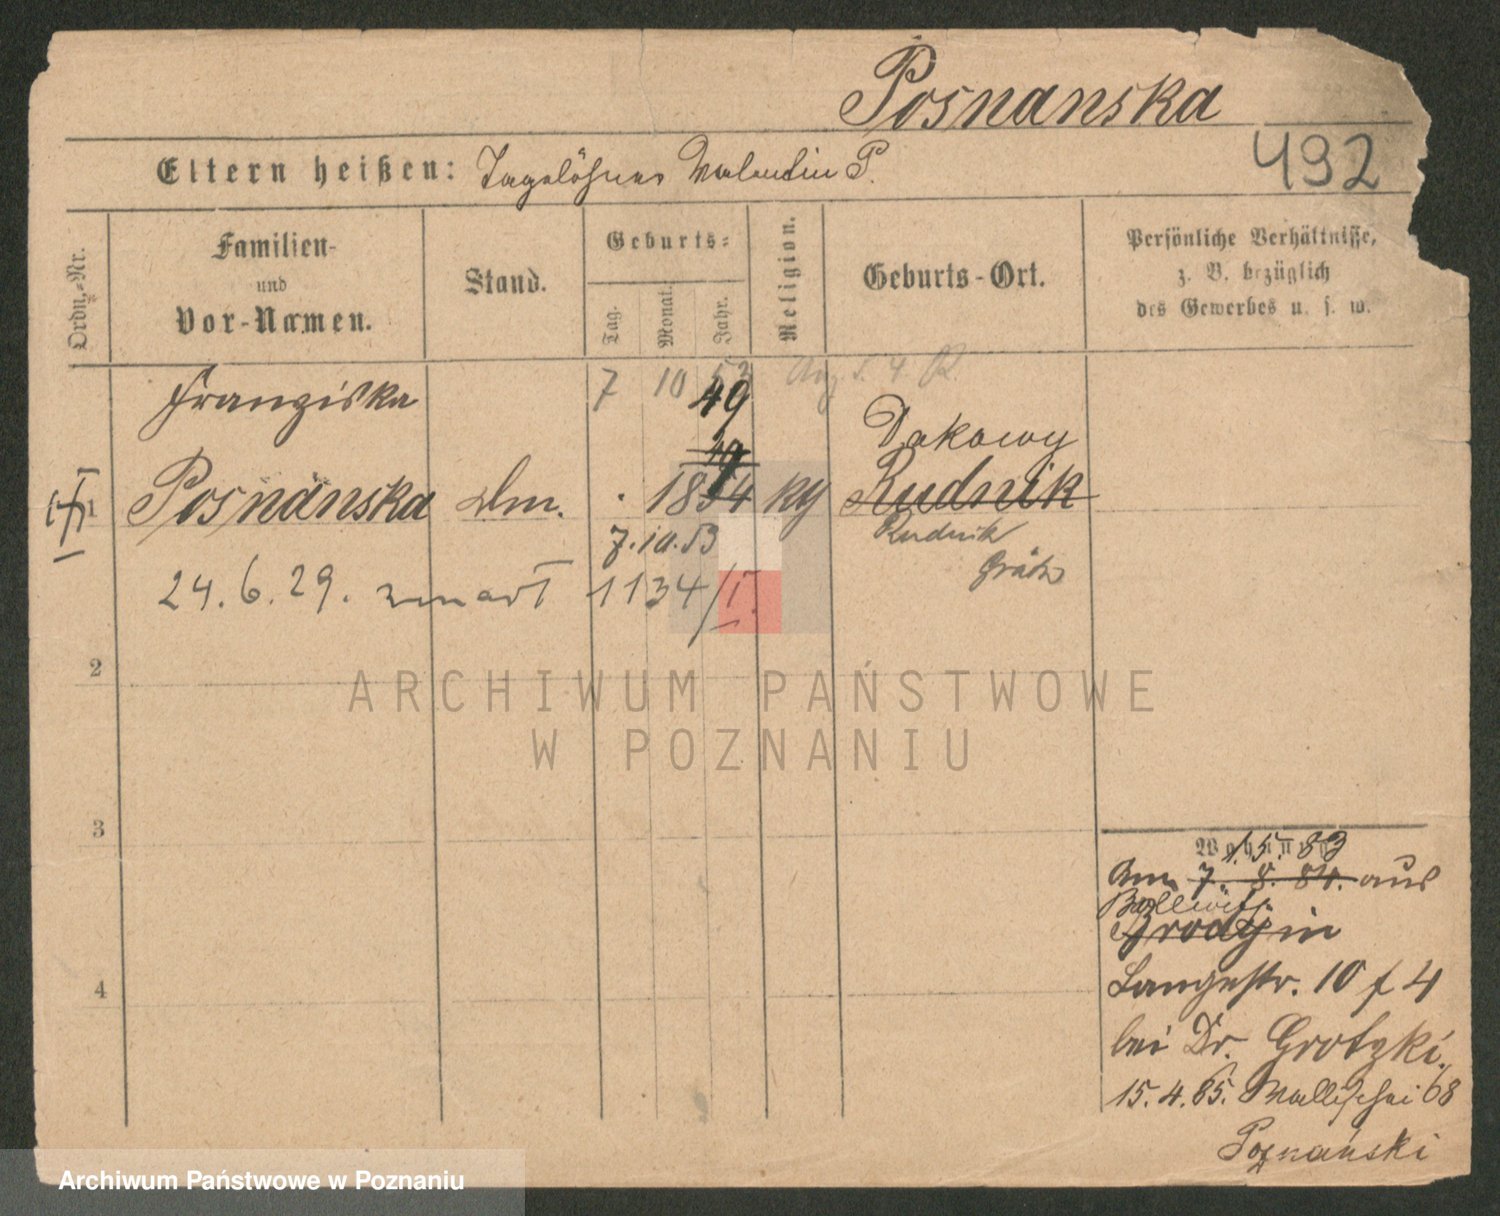 Posnanska
492
Eltern heißen: Tagelöhner Valentin P.
Ordn.-Nr.
Familien- und Vor-Namen.
Stand.
Geburts-
Tag.
Monat.
Jahr.
Religion.
Geburts-Ort.
Persönliche Verhältnisse,
z. B. bezüglich
des Gewerbes u. s. w.
7 10 53
49
Franziska
Dakowy
49
1 Posnanska Dm. 1854 kg Rudnik
7.10.53 Rudnik
Grätz
24.6.29. zmarł 1134/I.
2
3
4
ARCHIWUM PAŃSTWOWE
W POZNANIU
Wohnung
1.5.83
Am 7. 8. 84. aus
Grodzin
Langestr. 10 f 4
bei Dr. Grotzki.
15.4.85. Wallischei 68
Poznański
Archiwum Państwowe w Poznaniu